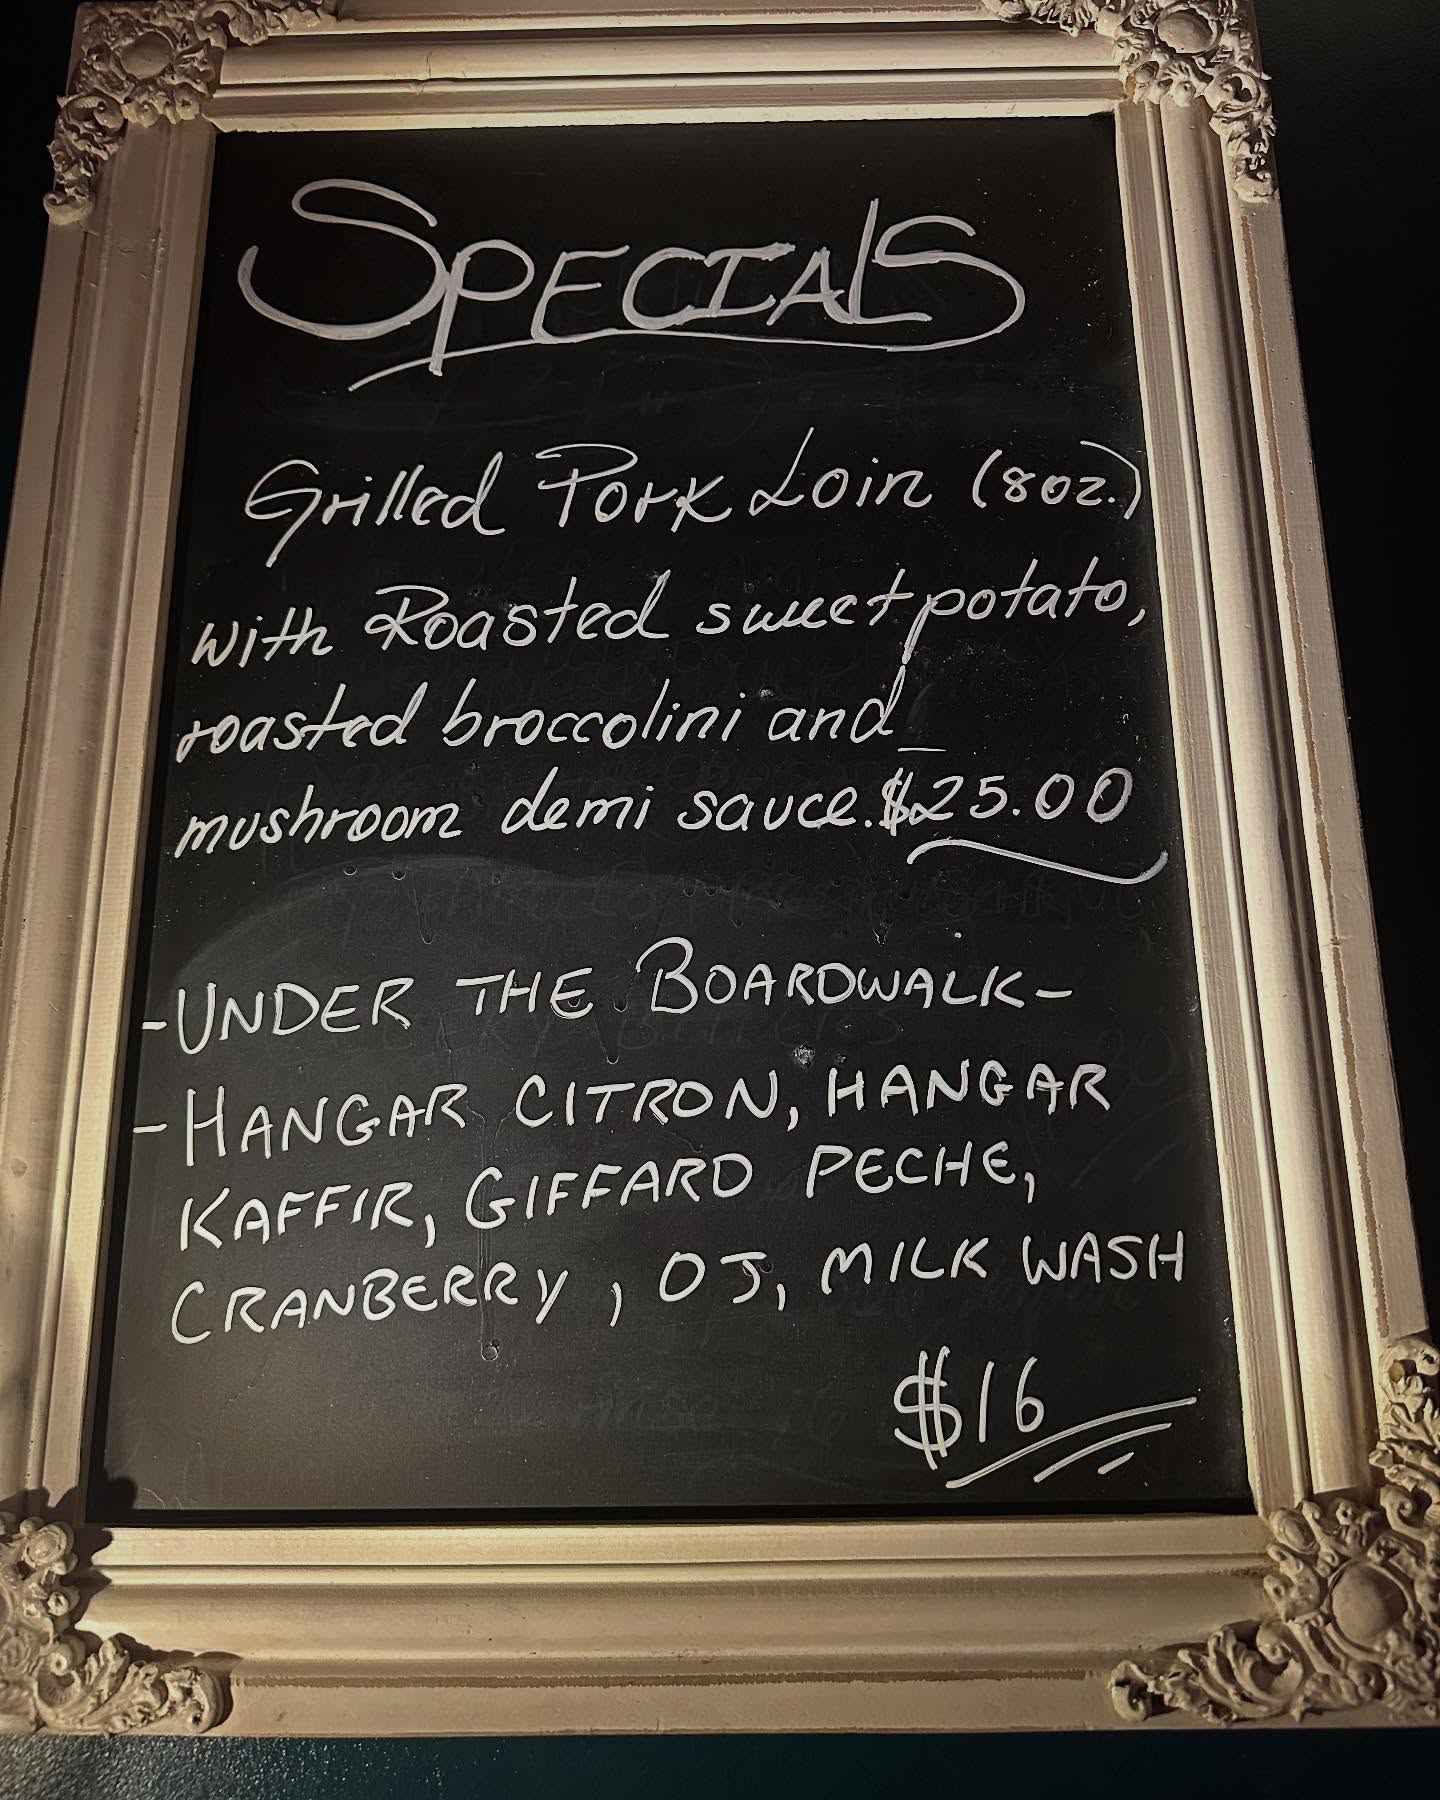 SPECIALS
Grilled Pork Loin (8oz.)
with Roasted sweet potato,
roasted broccolini and
mushroom demi sauce. $25.00
-UNDER THE BOARDWALK-
-HANGAR CITRON, HANGAR
KAFFIR, GIFFARD PECHE,
CRANBERRY, OJ, MILK WASH
$16